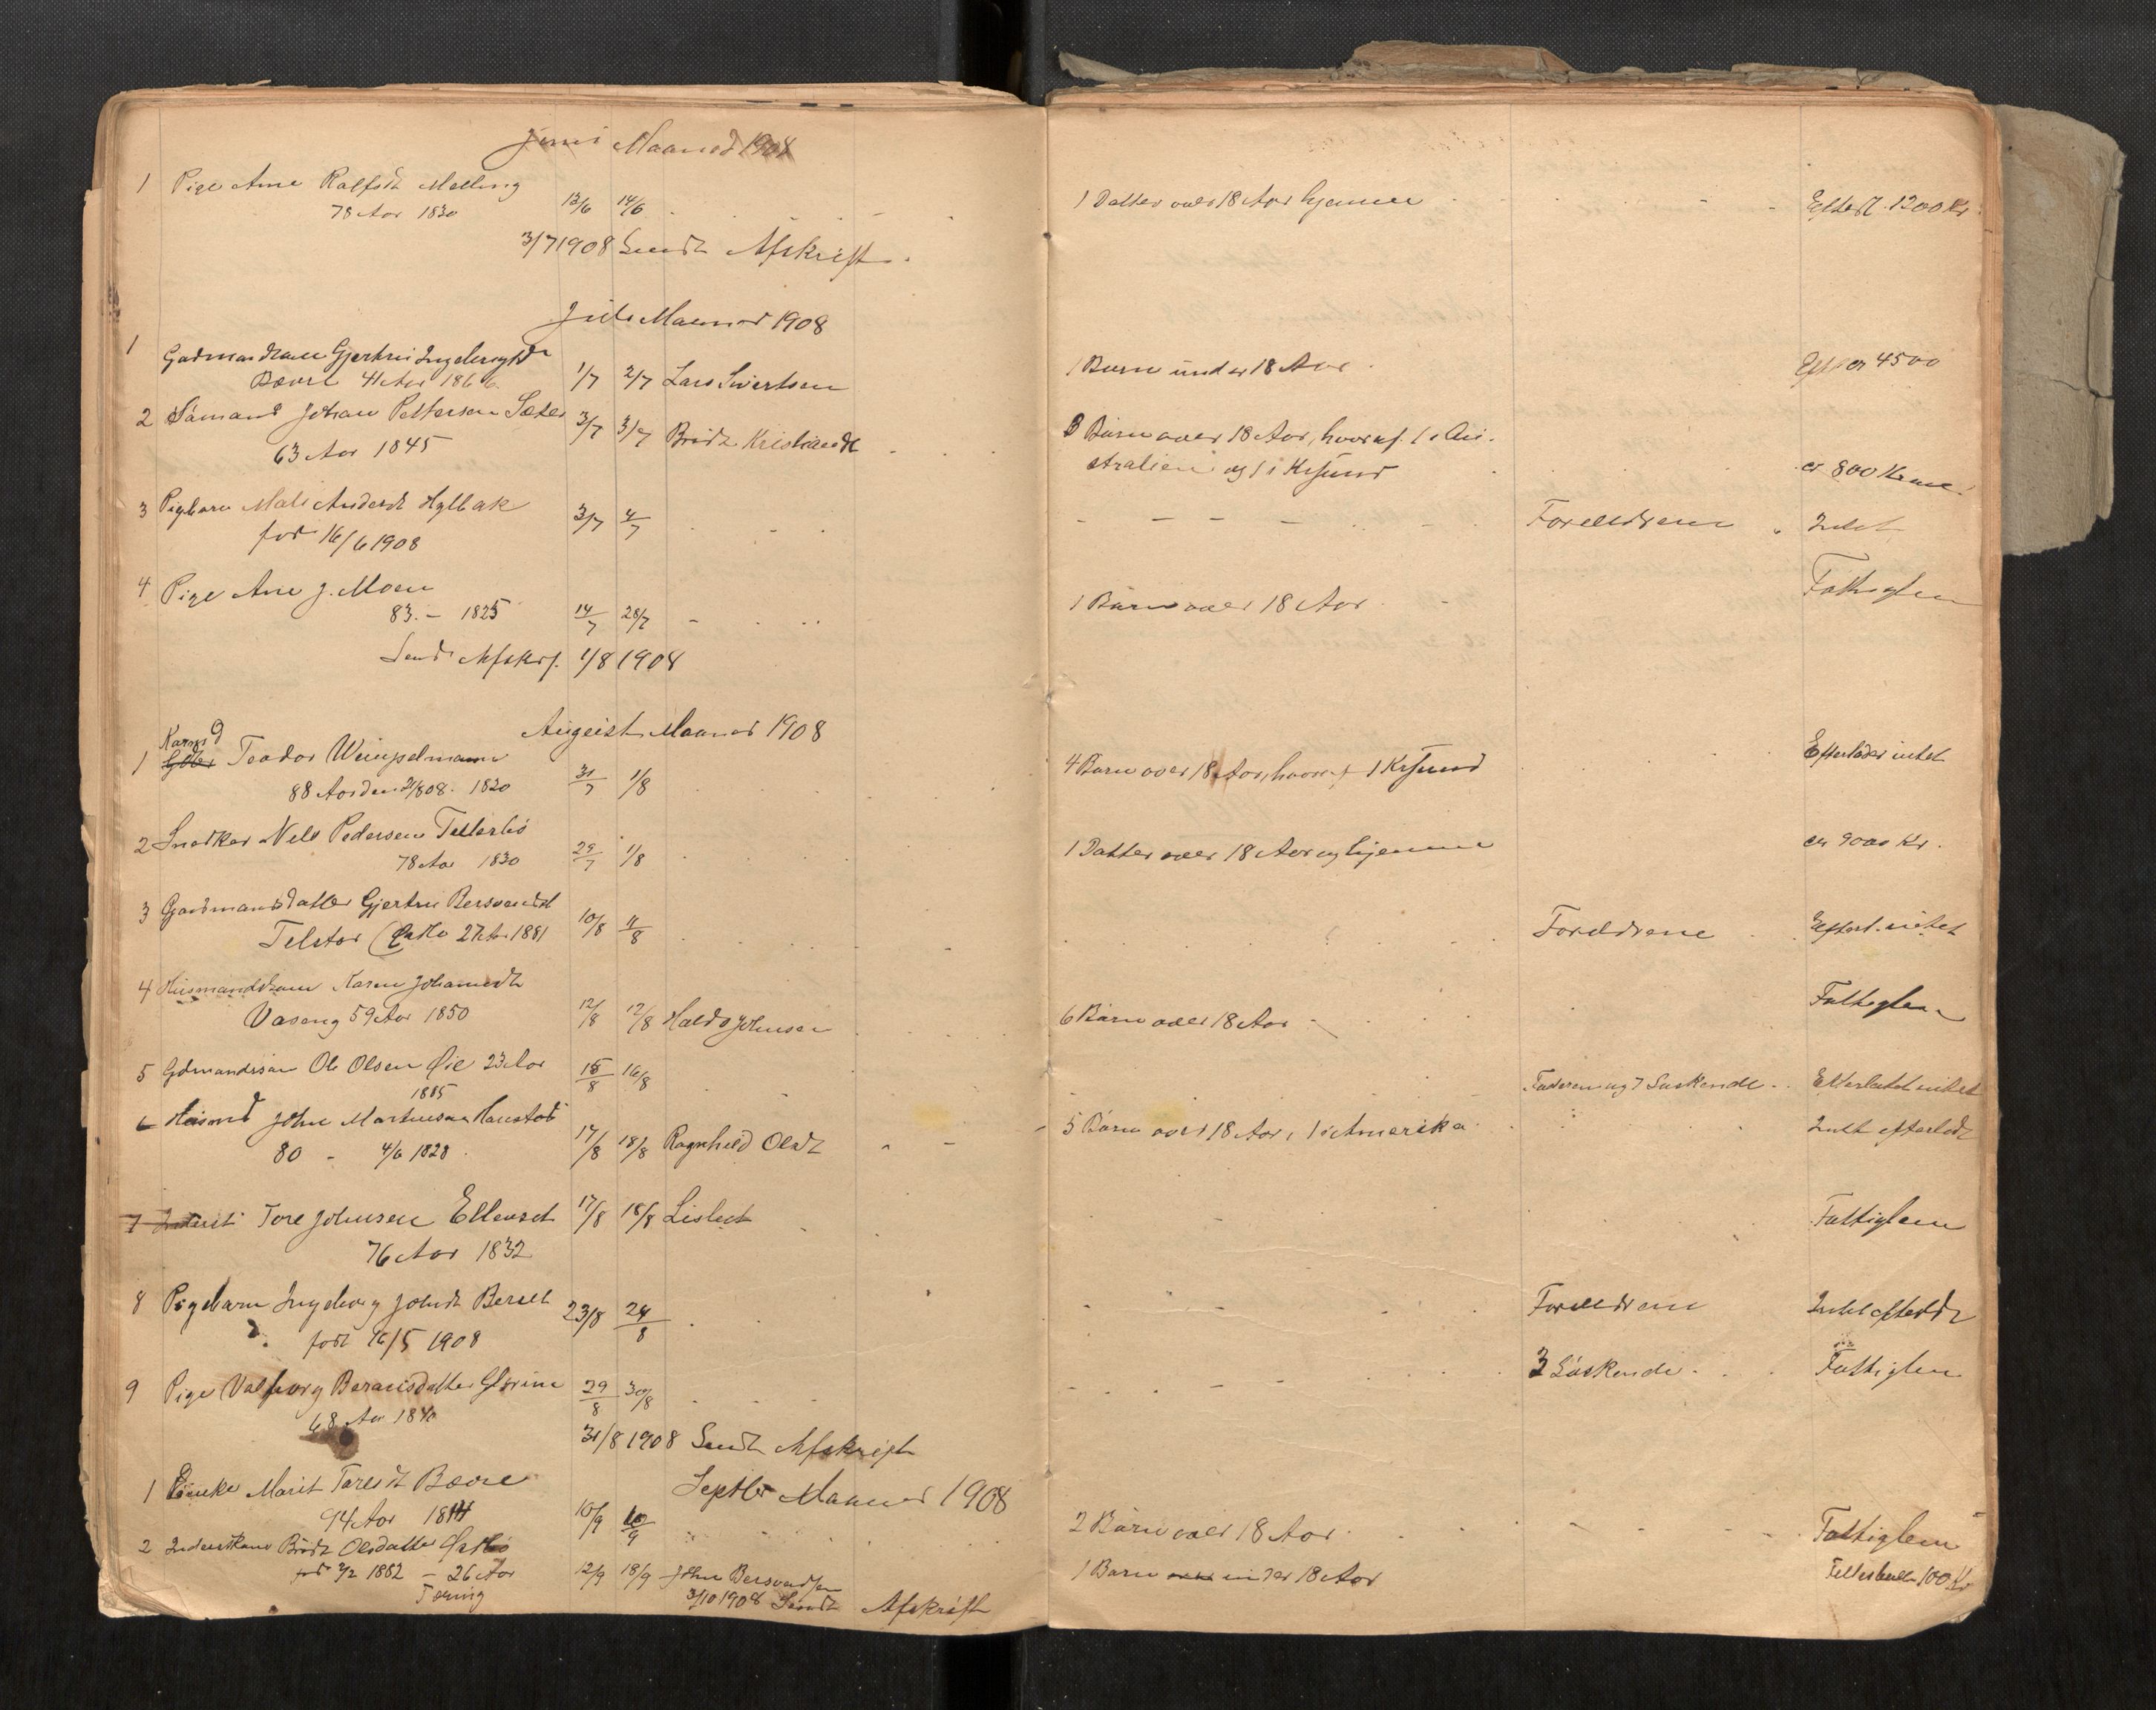 Juni Maaned 1908
1 Pige Ane Rolfsdt Melling
78 Aar 1830 13/6 14/6 1 Datter over 18 Aar hjemme Efterl. 1200 Kr.
3/7 1908 Sendt Afskrift.
Juli Maaned 1908
1 Gadmandkone Gjertru
Bævre 41 Aar 1866 1/7 2/7 Lars Sivertsen 1 Barn under 18 Aar Eft. ca 4500
2 Johan Pettersen Sæter
63 Aar 1845 3/7 3/7 Kristiansdt 3 Børn over 18 Aar, hvoraf 1 i Au-
stralien og 1 i Krsund ca 800 Krone
3 Pigebarn Mali Andersdt Hylbak
født 16/6 1908 3/7 4/7 Forældrene Intet
4 Pige Ane J. Moen
83 - 1825 14/7 28/7 1 Barn over 18 Aar Fattiglem
Sendt Afskrf. 1/8 1908
August Maaned 1908
1 Teodor Weimpelmann
88 Aar den 21/8 08. 1820 31/7 1/8 4 Børn over 18 Aar, hvoraf 1 Krsund Efterlader intet
2 Snedker Nels Pedersen Tellesbø
78 Aar 1830 29/7 1/8 1 Datter over 18 Aar og hjemme ca 9000 Kr.
3 Gaardmandsdatter Gjertru Bersvendsdt
Telstør 27 Aar 1881 10/8 11/8 Forældrene Efterl. intet
4 Husmandskone Karen Johannesdt
Vaseng 59 Aar 1850 12/8 12/8 Haldo Johnsen 6 Børn over 18 Aar Fattiglem
5 Gdmandssøn Ole Olsen Øie 23 Aar
1885 15/8 16/8 Faderen og 7 Søskende Efterladt intet
6 Husmd John Martinusen Hanstad
80 - 4/6 1828 17/8 18/8 Ragnhild Olsdt 5 Børn over 18 Aar, 1 i Amerika Intet efterladt
7 Inderst Tore Johnsen Ellevset 17/8 18/8 Lisbet Fattiglem
76 Aar 1832
8 Pigebarn Ingeborg Johnsdt Berset
født 16/5 1908 23/8 24/8 Forældrene Intet efterladt
9 Pige Valborg
68 Aar 1840 29/8 30/8 3 Søskende Fattiglem
31/8 1908 Sendt Afskrift
Septbr Maaned 1908
1 Enke Marit Toresdt Bævre
94 Aar 1814 10/9 10/9 2 Børn over 18 Aar Fattiglem
2 Inderstkone Olsdatter
født 2/2 1882 - 26 Aar 12/9 18/9 John Bersvendsen 1 Barn under 18 Aar 100 Kr
Tæring 3/10 1908 Sendt Afskrift